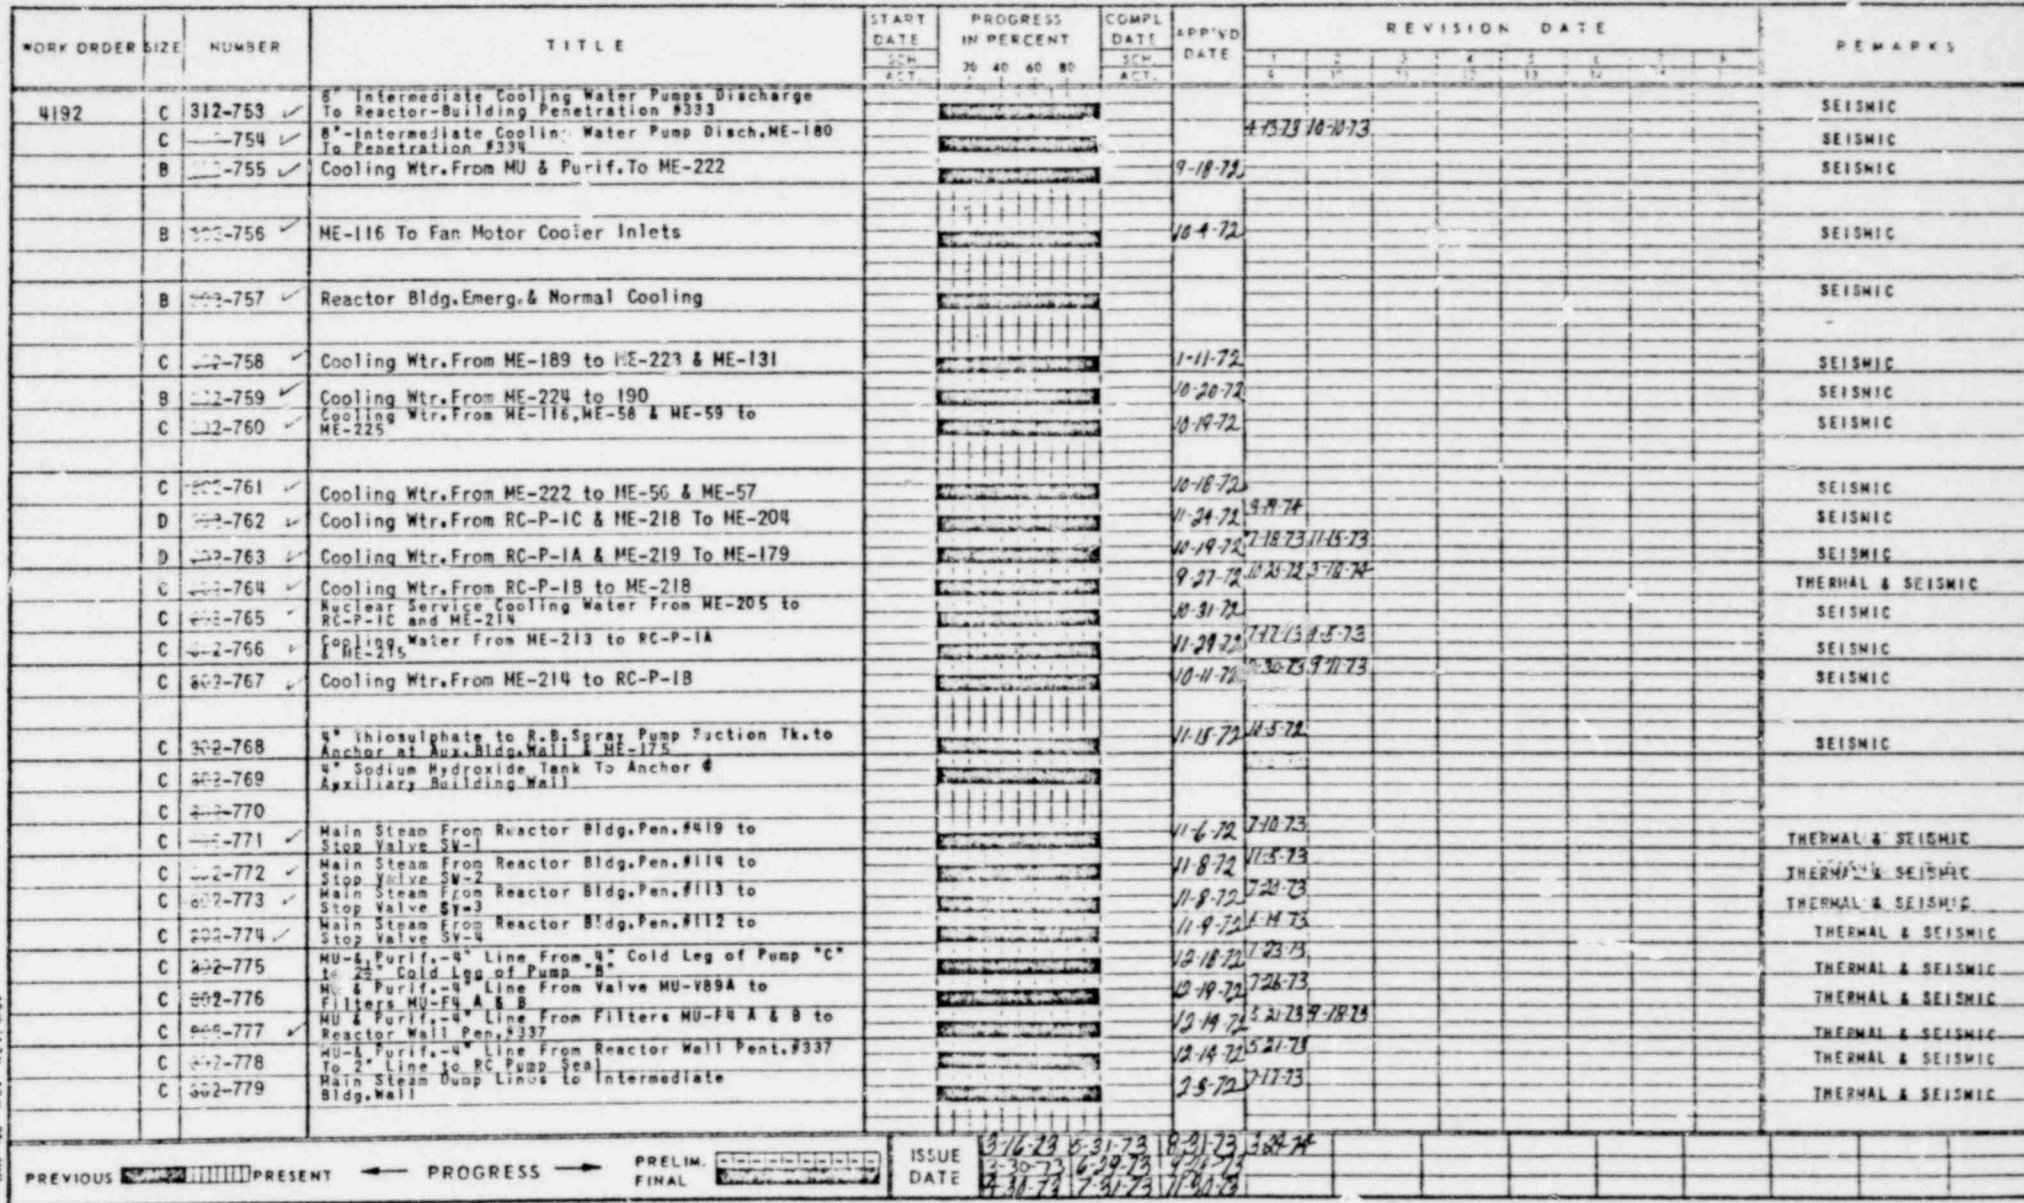 WORK ORDER SIZE NUMBER TITLE START DATE SCH. ACT. PROGRESS IN PERCENT 20 40 60 80 COMPL DATE SCH. ACT. APP'VD DATE REVISION DATE REMARKS
4192 C 312-753 ✓ Intermediate Cooling Water Pumps Discharge To Reactor-Building Penetration #333 SEISMIC
C -754 ✓ 8"-Intermediate Cooling Water Pump Disch.ME-180 To Penetration #334 4-13-73 10-10-73 SEISMIC
B -755 ✓ Cooling Wtr.From MU & Purif.To ME-222 9-18-72 SEISMIC
B -756 ✓ ME-116 To Fan Motor Cooler Inlets 10-4-72 SEISMIC
B -757 ✓ Reactor Bldg.Emerg.& Normal Cooling SEISMIC
C -758 ✓ Cooling Wtr.From ME-189 to ME-223 & ME-131 1-11-72 SEISMIC
B -759 ✓ Cooling Wtr.From ME-224 to 190 10-20-72 SEISMIC
C -760 ✓ Cooling Wtr.From ME-116,ME-58 & ME-59 to ME-225 10-19-72 SEISMIC
C -761 ✓ Cooling Wtr.From ME-222 to ME-56 & ME-57 10-18-72 SEISMIC
D -762 ✓ Cooling Wtr.From RC-P-1C & ME-218 To ME-204 11-24-72 SEISMIC
D -763 ✓ Cooling Wtr.From RC-P-1A & ME-219 To ME-179 10-19-72 7-18-73 11-15-73 SEISMIC
C -764 ✓ Cooling Wtr.From RC-P-1B to ME-218 9-27-72 10-25-72 THERMAL & SEISMIC
C -765 ✓ Nuclear Service Cooling Water From ME-205 to RC-P-1C and ME-214 10-31-72 SEISMIC
C -766 ✓ Cooling Water From ME-213 to RC-P-1A & ME-215 11-29-72 SEISMIC
C 802-767 ✓ Cooling Wtr.From ME-214 to RC-P-1B 10-11-72 SEISMIC
C 302-768 4" Thiosulphate to R.B.Spray Pump Suction Tk.to Anchor at Aux.Bldg.Wall & ME-175 11-15-72 10-5-72 SEISMIC
C 302-769 4" Sodium Hydroxide Tank To Anchor @ Auxiliary Building Wall
C -770
C -771 ✓ Main Steam From Reactor Bldg.Pen.#419 to Stop Valve SV-1 11-6-72 7-10-73 THERMAL & SEISMIC
C -772 ✓ Main Steam From Reactor Bldg.Pen.#114 to Stop Valve SV-2 11-8-72 11-5-73 THERMAL & SEISMIC
C -773 ✓ Main Steam From Reactor Bldg.Pen.#113 to Stop Valve SV-3 11-8-72 7-20-73 THERMAL & SEISMIC
C -774 ✓ Main Steam From Reactor Bldg.Pen.#112 to Stop Valve SV-4 11-9-72 THERMAL & SEISMIC
C 302-775 MU-& Purif.-4" Line From 4" Cold Leg of Pump "C" to 2½" Cold Leg of Pump "B" 12-18-72 1-23-73 THERMAL & SEISMIC
C 802-776 MU & Purif.-4" Line From Valve MU-V89A to Filters MU-F4 A & B 12-19-72 7-26-73 THERMAL & SEISMIC
C -777 ✓ MU & Purif.-4" Line From Filters MU-F4 A & B to Reactor Wall Pen.#337 12-14-72 5-21-73 9-18-73 THERMAL & SEISMIC
C -778 MU-& Purif.-4" Line From Reactor Wall Pent.#337 To 2" Line to RC Pump Seal 12-14-72 5-21-73 THERMAL & SEISMIC
C 302-779 Main Steam Dump Lines to Intermediate Bldg.Wall 2-5-72 7-17-73 THERMAL & SEISMIC
PREVIOUS PRESENT ← PROGRESS → PRELIM. FINAL ISSUE DATE
3-16-73 5-31-73 8-31-73
3-30-73 6-29-73
4-30-73 7-31-73 11-30-73